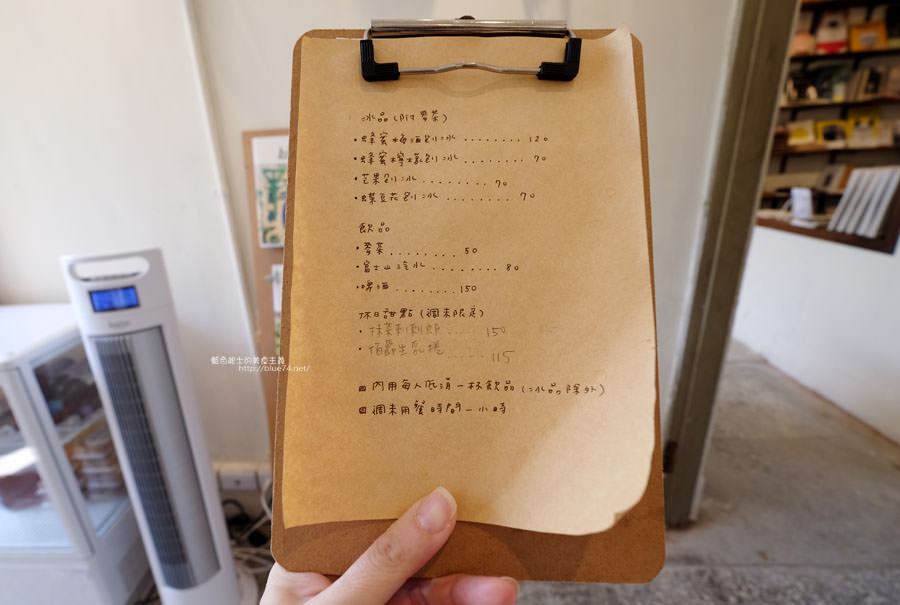 冰品(附麥茶)
•蜂蜜梅酒刨冰........120
•蜂蜜檸檬刨冰........70
•芒果刨冰........70
•蝶豆花刨冰........70
飲品
•麥茶........50
•富士山冷水........80
•啤酒........150
休日甜點(週末限定)
•抹茶布朗尼.....150
•伯爵生乳捲......115
回內用每人低消一杯飲品(冰品除外)
回週末用餐時間一小時
藍色起士的美食主義
http://blue74.net/